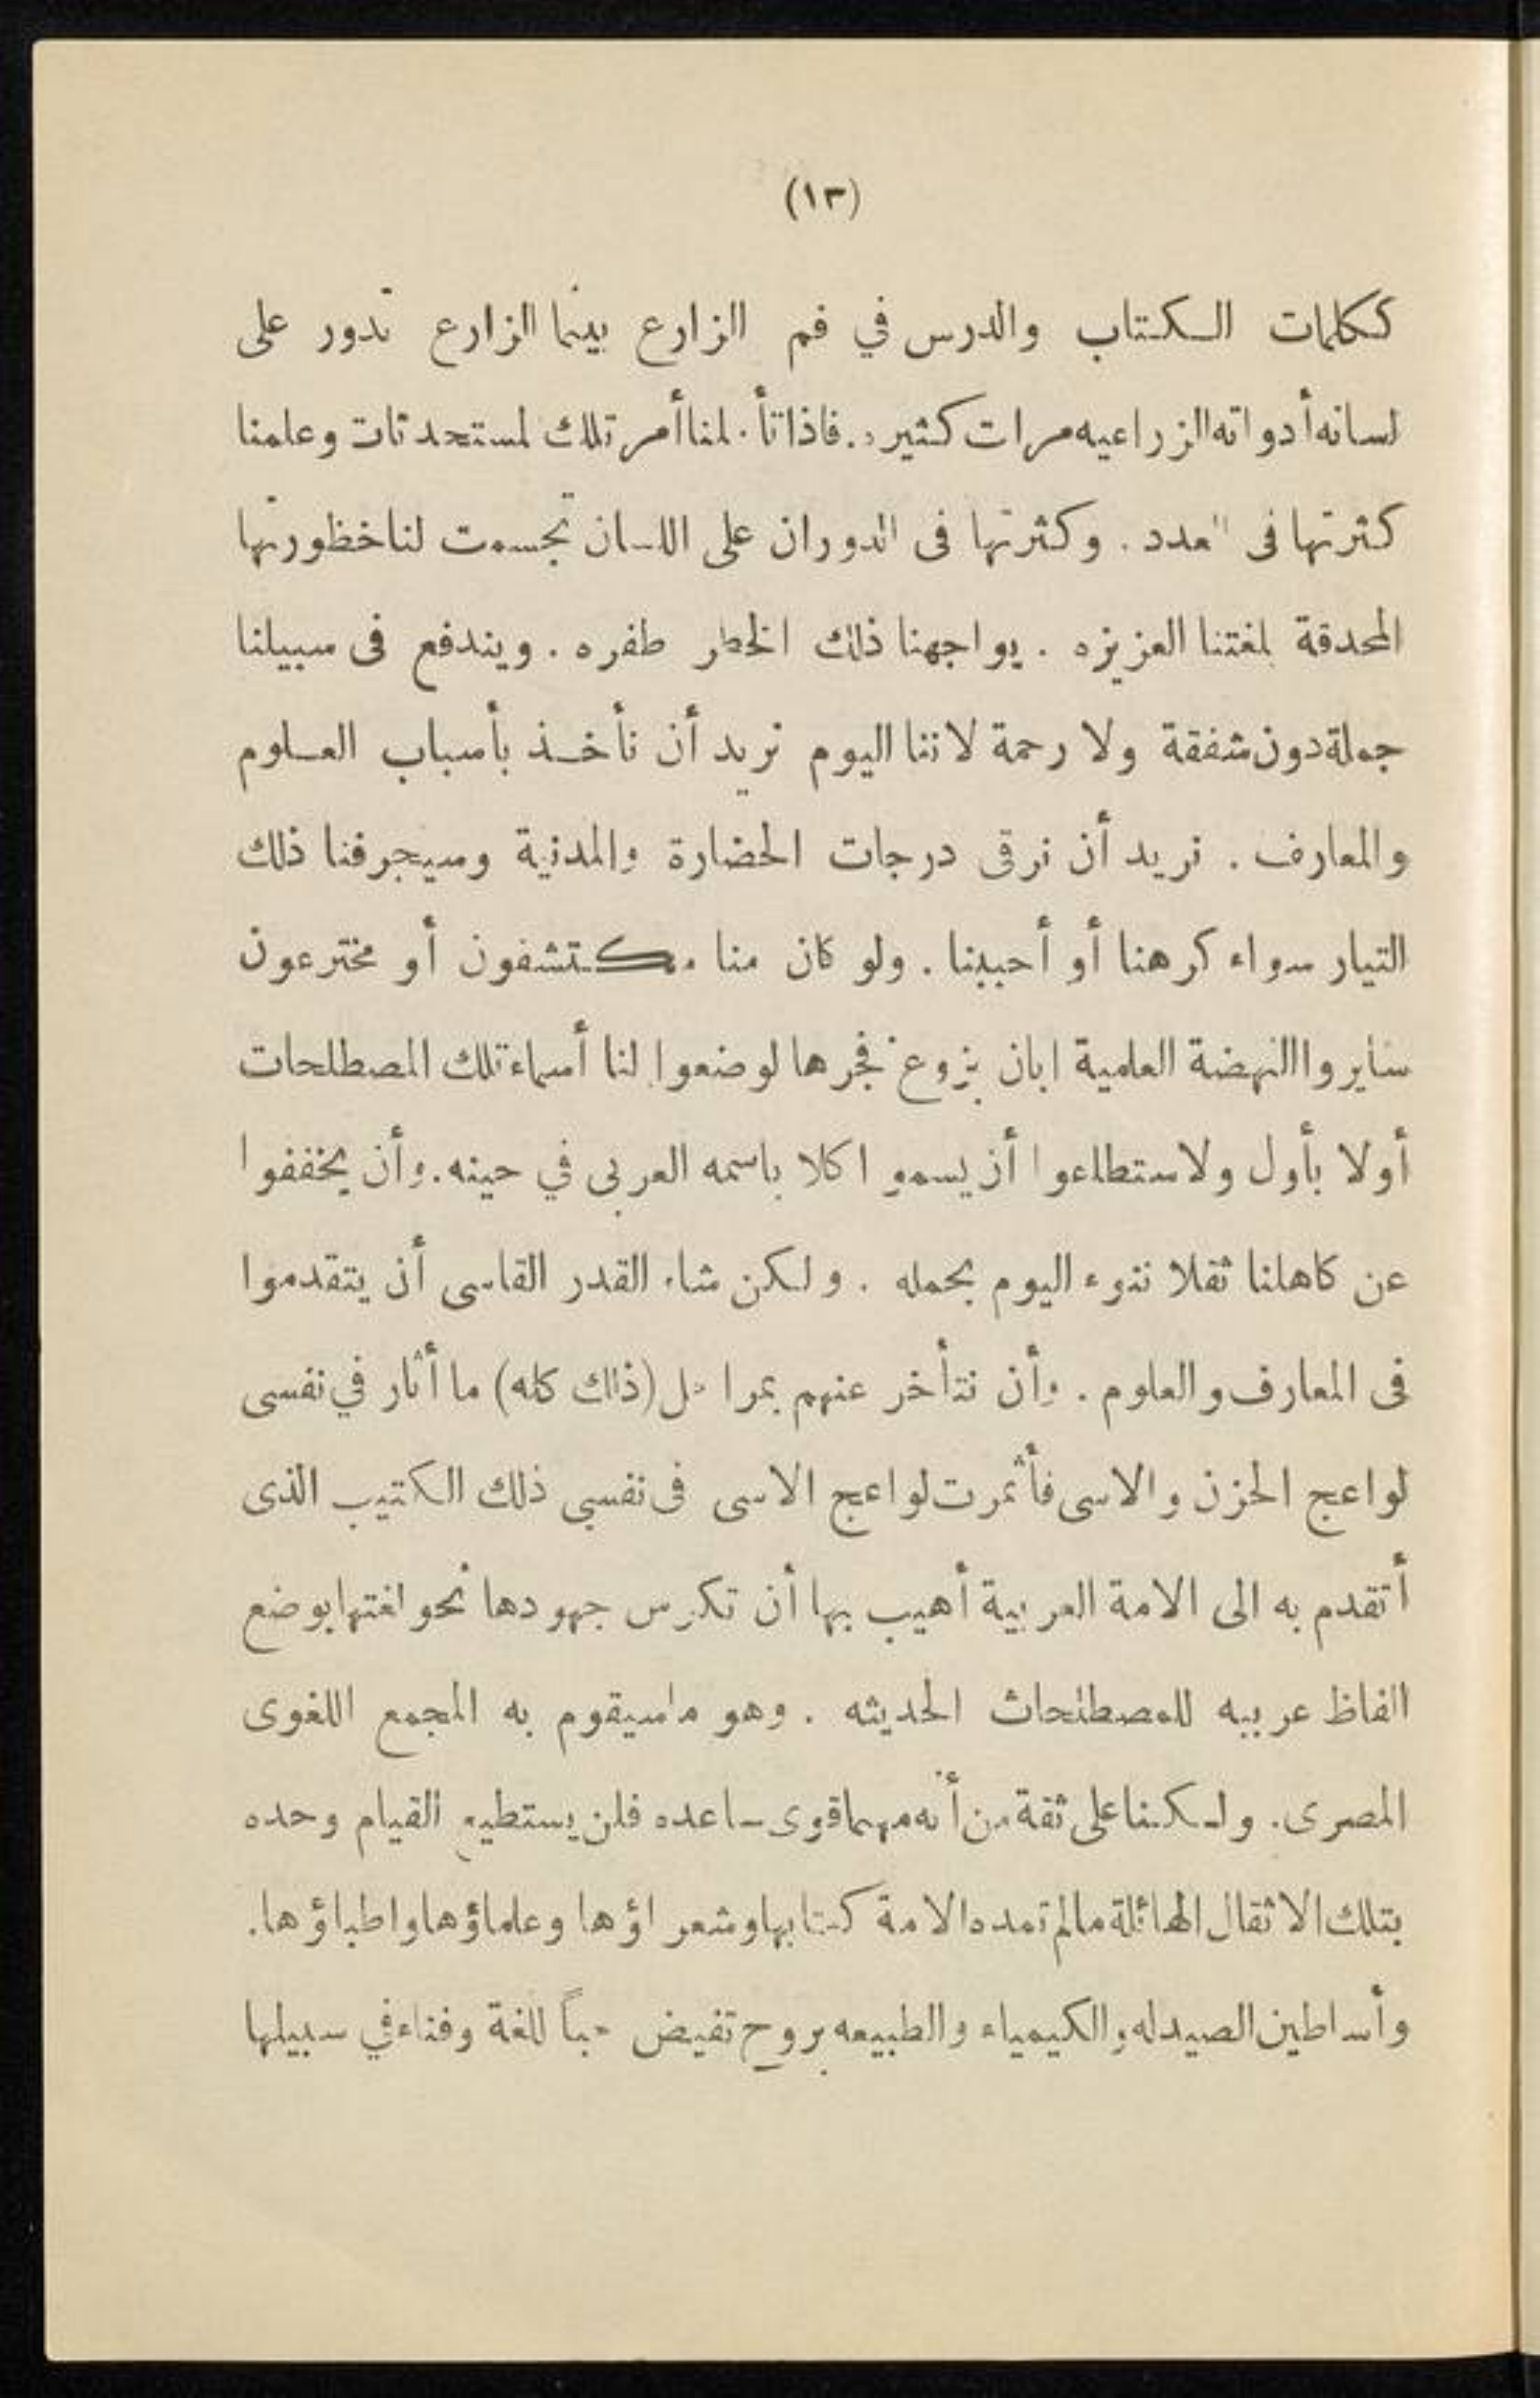 (١٣)
ككلمات الكتاب والدرس في فم الزارع بينما الزارع تدور على
لسانه أدواته الزراعيه مرات كثيره. فاذا تأملنا أمر تلك لمستحدثات وعلمنا
كثرتها فى العدد. وكثرتها فى الدوران على اللسان تجسمت لنا خظورتها
المحدقة بلغتنا العزيزه. يواجهنا ذلك الخطر طفره. ويندفع فى سبيلنا
جملة دون شفقة ولا رحمة لاننا اليوم نريد أن نأخذ بأسباب العلوم
والمعارف. نريد أن نرقى درجات الحضارة والمدنية وسيجرفنا ذلك
التيار سواء كرهنا أو أحببنا. ولو كان منا مكتشفون أو مخترعون
سايروا النهضة العلمية ابان بزوغ فجرها لوضعوا لنا أسماء تلك المصطلحات
أولا بأول ولاستطاعوا أن يسموا كلا باسمه العربى في حينه. وأن يخففوا
عن كاهلنا ثقلا ننوء اليوم بحمله. ولكن شاء القدر القاسى أن يتقدموا
فى المعارف والعلوم. وأن نتأخر عنهم بمراحل (ذلك كله) ما أثار في نفسى
لواعج الحزن والاسى فأثمرت لواعج الاسى فى نفسي ذلك الكتيب الذى
أتقدم به الى الامة العربية أهيب بها أن تكرس جهودها نحو لغتها بوضع
الفاظ عربيه للمصطلحات الحديثه. وهو ماسيقوم به المجمع اللغوى
المصرى. ولكننا على ثقة من أنه مهما قوى ساعده فلن يستطيع القيام وحده
بتلك الاثقال الهائلة مالم تمده الامة كتابها وشعراؤها وعلماؤها واطباؤها.
وأساطين الصيدله والكيمياء والطبيعه بروح تفيض حباً للغة وفناء في سبيلها